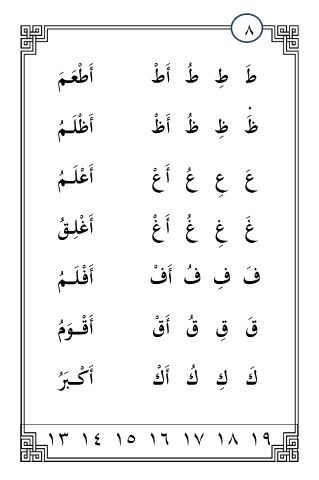 ٨
طَ طِ طُ أَطْ أَطْعَمَ
ظَ ظِ ظُ أَظْ أَظْلَـمُ
عَ عِ عُ أَعْ أَعْلَـمُ
غَ غِ غُ أَغْ أَغْلِـقُ
فَ فِ فُ أَفْ أَفْلَـمُ
قَ قِ قُ أَقْ أَقْـوَمُ
كَ كِ كُ أَكْ أَكْـبَرُ
١٩ ١٨ ١٧ ١٦ ١٥ ١٤ ١٣